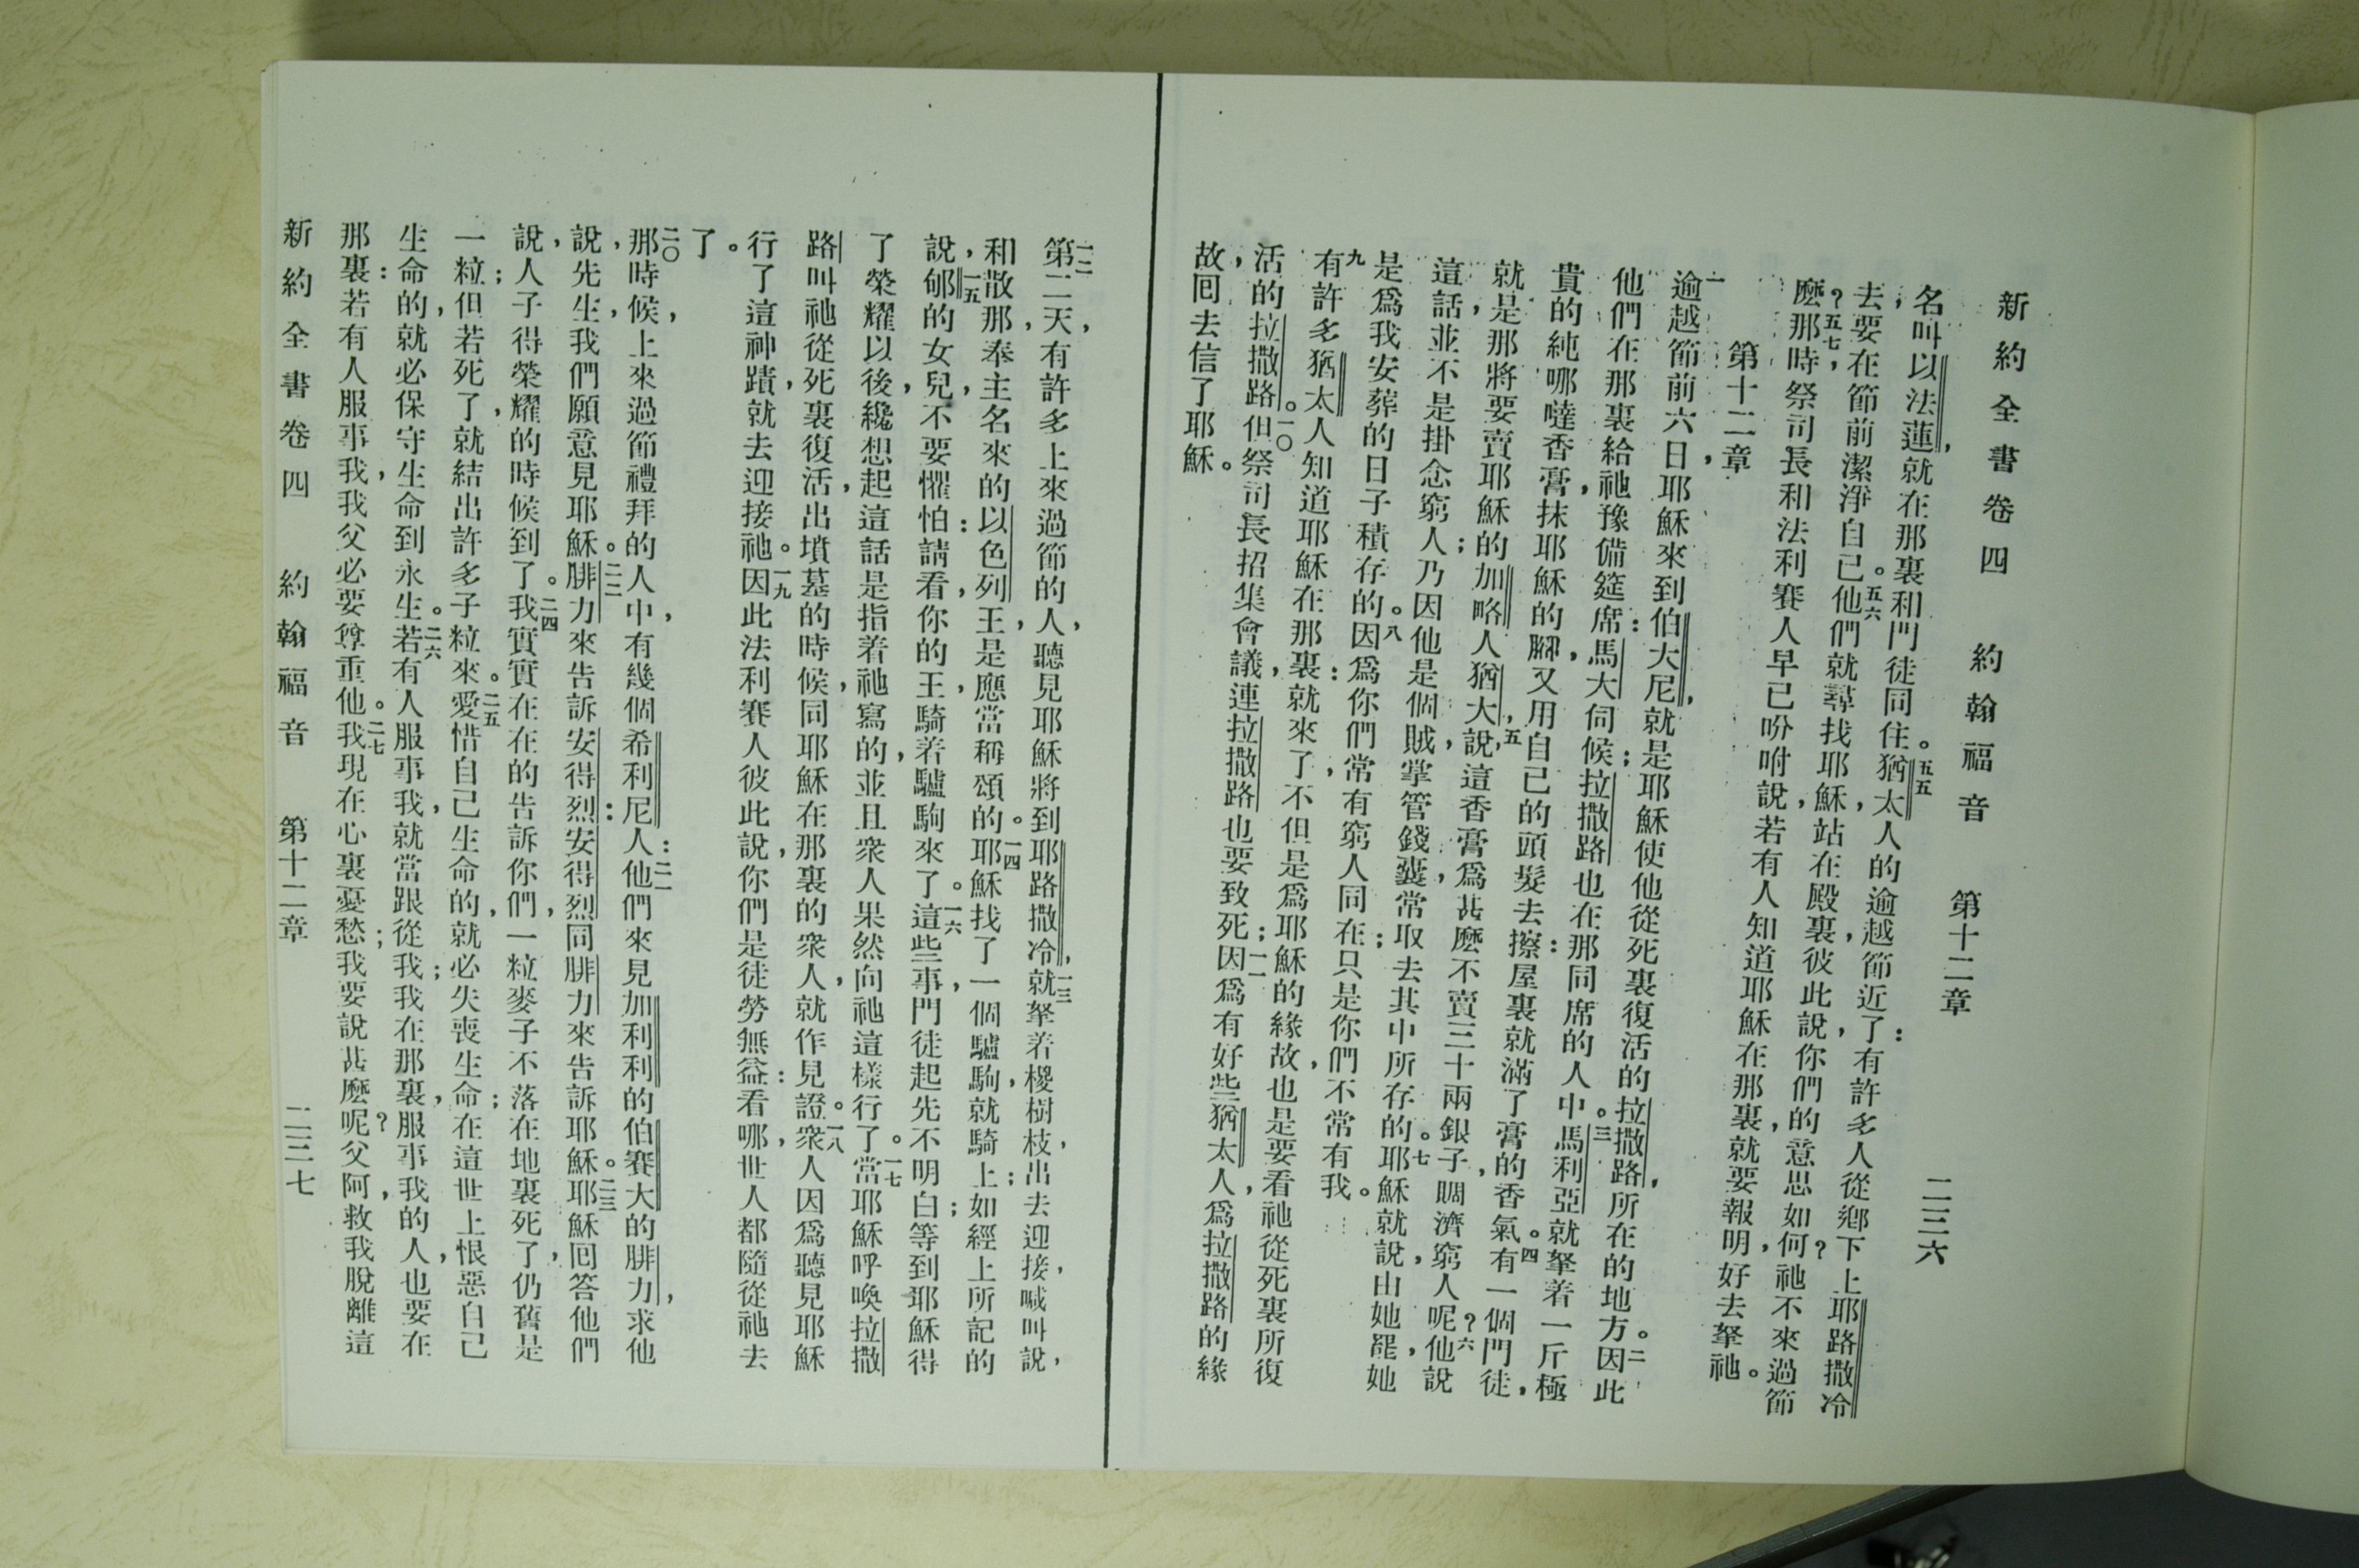 新約全書卷四　約翰福音　第十二章　二三六
名叫以法蓮，就在那裏和門徒同住。五五猶太人的逾越節近了：有許多人從鄉下上耶路撒冷
去，要在節前潔淨自己。五六他們就尋找耶穌，站在殿裏，彼此說，你們的意思如何？祂不來過節
麼？五七那時，祭司長和法利賽人早已吩咐說，若有人知道耶穌在那裏，就要報明，好去拏祂。
第十二章
一逾越節前六日，耶穌來到伯大尼，就是耶穌使他從死裏復活的拉撒路，所在的地方。二因此
他們在那裏給祂豫備筵席：馬大伺候；拉撒路也在那同席的人中。三馬利亞就拏着一斤極
貴的純哪噠香膏，抹耶穌的腳，又用自己的頭髮去擦：屋裏就滿了膏的香氣。四有一個門徒，
就是那將要賣耶穌的加略人猶大，說，五這香膏爲甚麼不賣三十兩銀子，賙濟窮人呢？六他說
這話，並不是掛念窮人；乃因他是個賊，掌管錢囊，常取去其中所存的。七耶穌就說，由她罷，她
是爲我安葬的日子積存的。八因爲你們常有窮人同在；只是你們不常有我。
九有許多猶太人知道耶穌在那裏：就來了，不但是爲耶穌的緣故，也是要看祂從死裏所復
活的拉撒路。一〇但祭司長招集會議，連拉撒路也要致死；一一因爲有好些猶太人，爲拉撒路的緣
故，囘去信了耶穌。
一二第二天，有許多上來過節的人，聽見耶穌將到耶路撒冷，一三就拏着椶樹枝，出去迎接，喊叫說，
和散那，奉主名來的以色列王，是應當稱頌的。一四耶穌找了一個驢駒，就騎上；如經上所記的
說，一五郇的女兒，不要懼怕：請看，你的王，騎着驢駒來了。一六這些事，門徒起先不明白；等到耶穌得
了榮耀以後，纔想起這話是指着祂寫的，並且衆人果然向祂這樣行了。一七當耶穌呼喚拉撒
路，叫祂從死裏復活，出墳墓的時候，同耶穌在那裏的衆人，就作見證。一八衆人因爲聽見耶穌
行了這神蹟，就去迎接祂。一九因此法利賽人彼此說，你們是徒勞無益：看哪，世人都隨從祂去
了。
二〇那時候，上來過節禮拜的人中，有幾個希利尼人：二一他們來見加利利的伯賽大的腓力，求他
說，先生，我們願意見耶穌。二二腓力來告訴安得烈：安得烈同腓力來告訴耶穌。二三耶穌囘答他們
說，人子得榮耀的時候到了。二四我實實在在的告訴你們，一粒麥子不落在地裏死了，仍舊是
一粒；但若死了，就結出許多子粒來。二五愛惜自己生命的，就必失喪生命；在這世上恨惡自己
生命的，就必保守生命到永生。二六若有人服事我，就當跟從我；我在那裏，服事我的人，也要在
那裏：若有人服事我，我父必要尊重他。二七我現在心裏憂愁；我要說甚麼呢？父阿，救我脫離這
新約全書卷四　約翰福音　第十二章　二三七